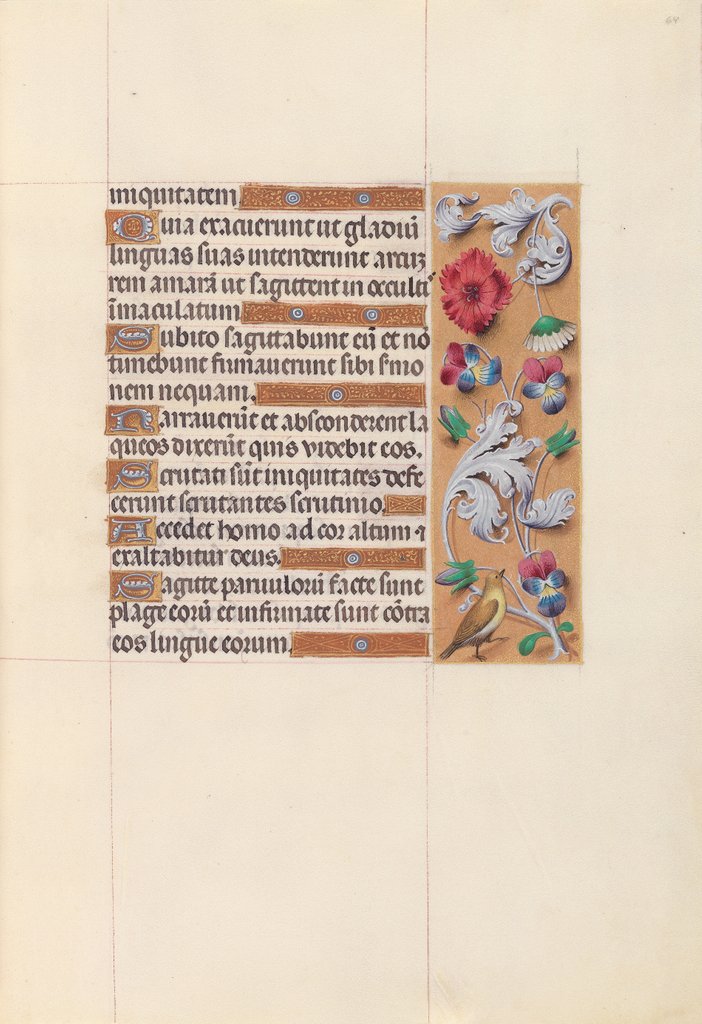 64
iniquitatem.
Quia exacuerunt ut gladiū
linguas suas intenderunt arcuʒ
rem amarā ut sagittent in occult̄
īmaculatum
Subito sagittabunt eū et nō
timebunt firmauerunt sibi s̄mo
nem nequam.
Narrauerūt et absconderent la
queos dixerūt quis videbit eos.
Scrutati sūt iniquitates defe
cerunt scrutantes scrutinio.
Accedet homo ad cor altum ⁊
exaltabitur deus.
Sagitte paruulorū facte sunt
plage eorū et infirmate sunt cōtra
eos lingue eorum.